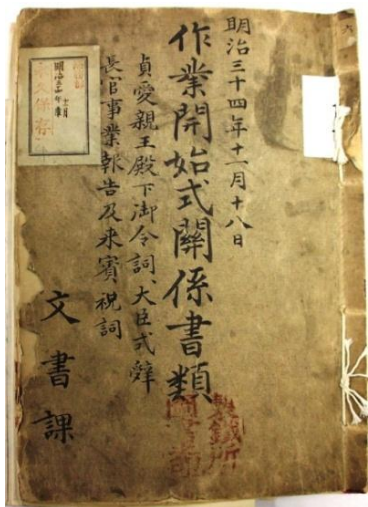 明治三十四年十一月十八日
作業開始式關係書類
貞愛親王殿下御令詞、大臣式辞
長官事業報告及来賓祝詞
文書課
製鐵所